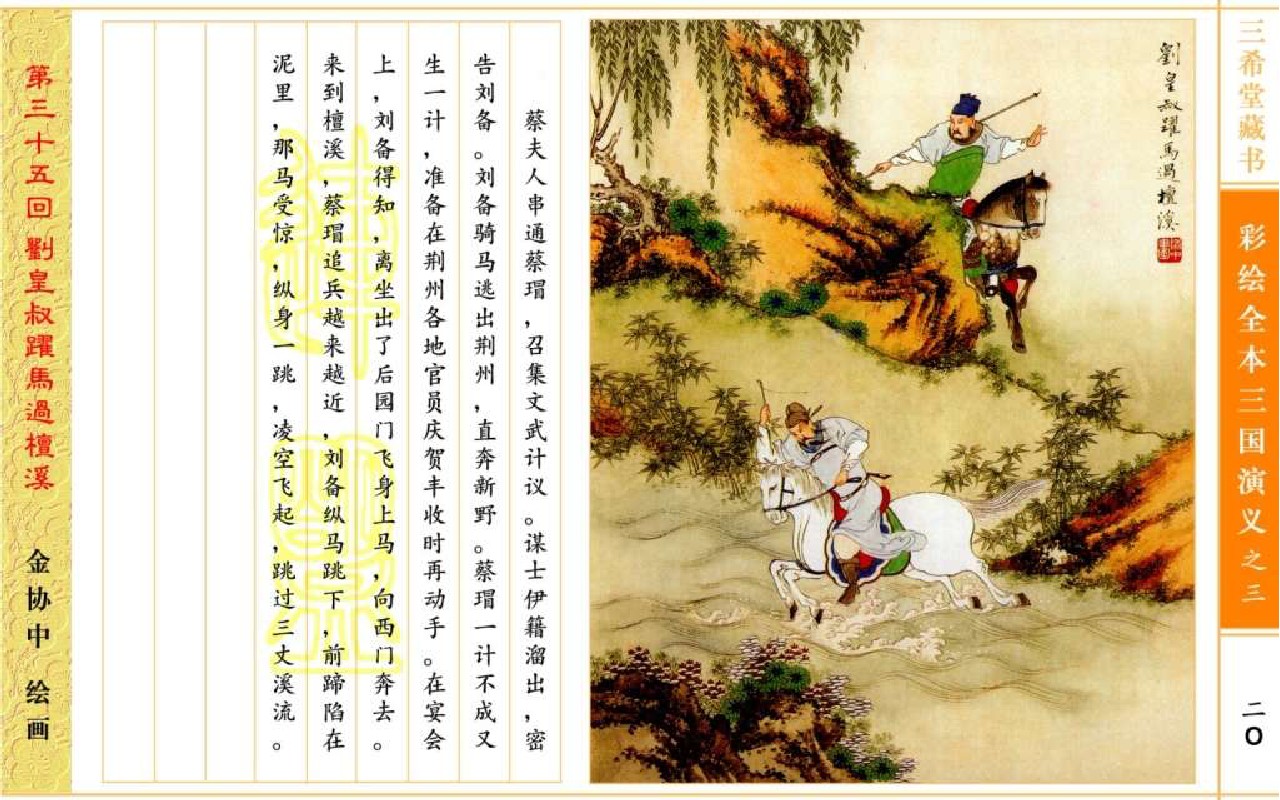 三希堂藏书
彩绘全本三国演义之三
二〇
劉皇叔躍馬過檀溪
蔡夫人串通蔡瑁，召集文武计议。谋士伊籍溜出，密
告刘备。刘备骑马逃出荆州，直奔新野。蔡瑁一计不成又
生一计，准备在荆州各地官员庆贺丰收时再动手。在宴会
上，刘备得知，离坐出了后园门飞身上马，向西门奔去。
来到檀溪，蔡瑁追兵越来越近，刘备纵马跳下，前蹄陷在
泥里，那马受惊，纵身一跳，凌空飞起，跳过三丈溪流。
第三十五回 劉皇叔躍馬過檀溪 金协中 绘画